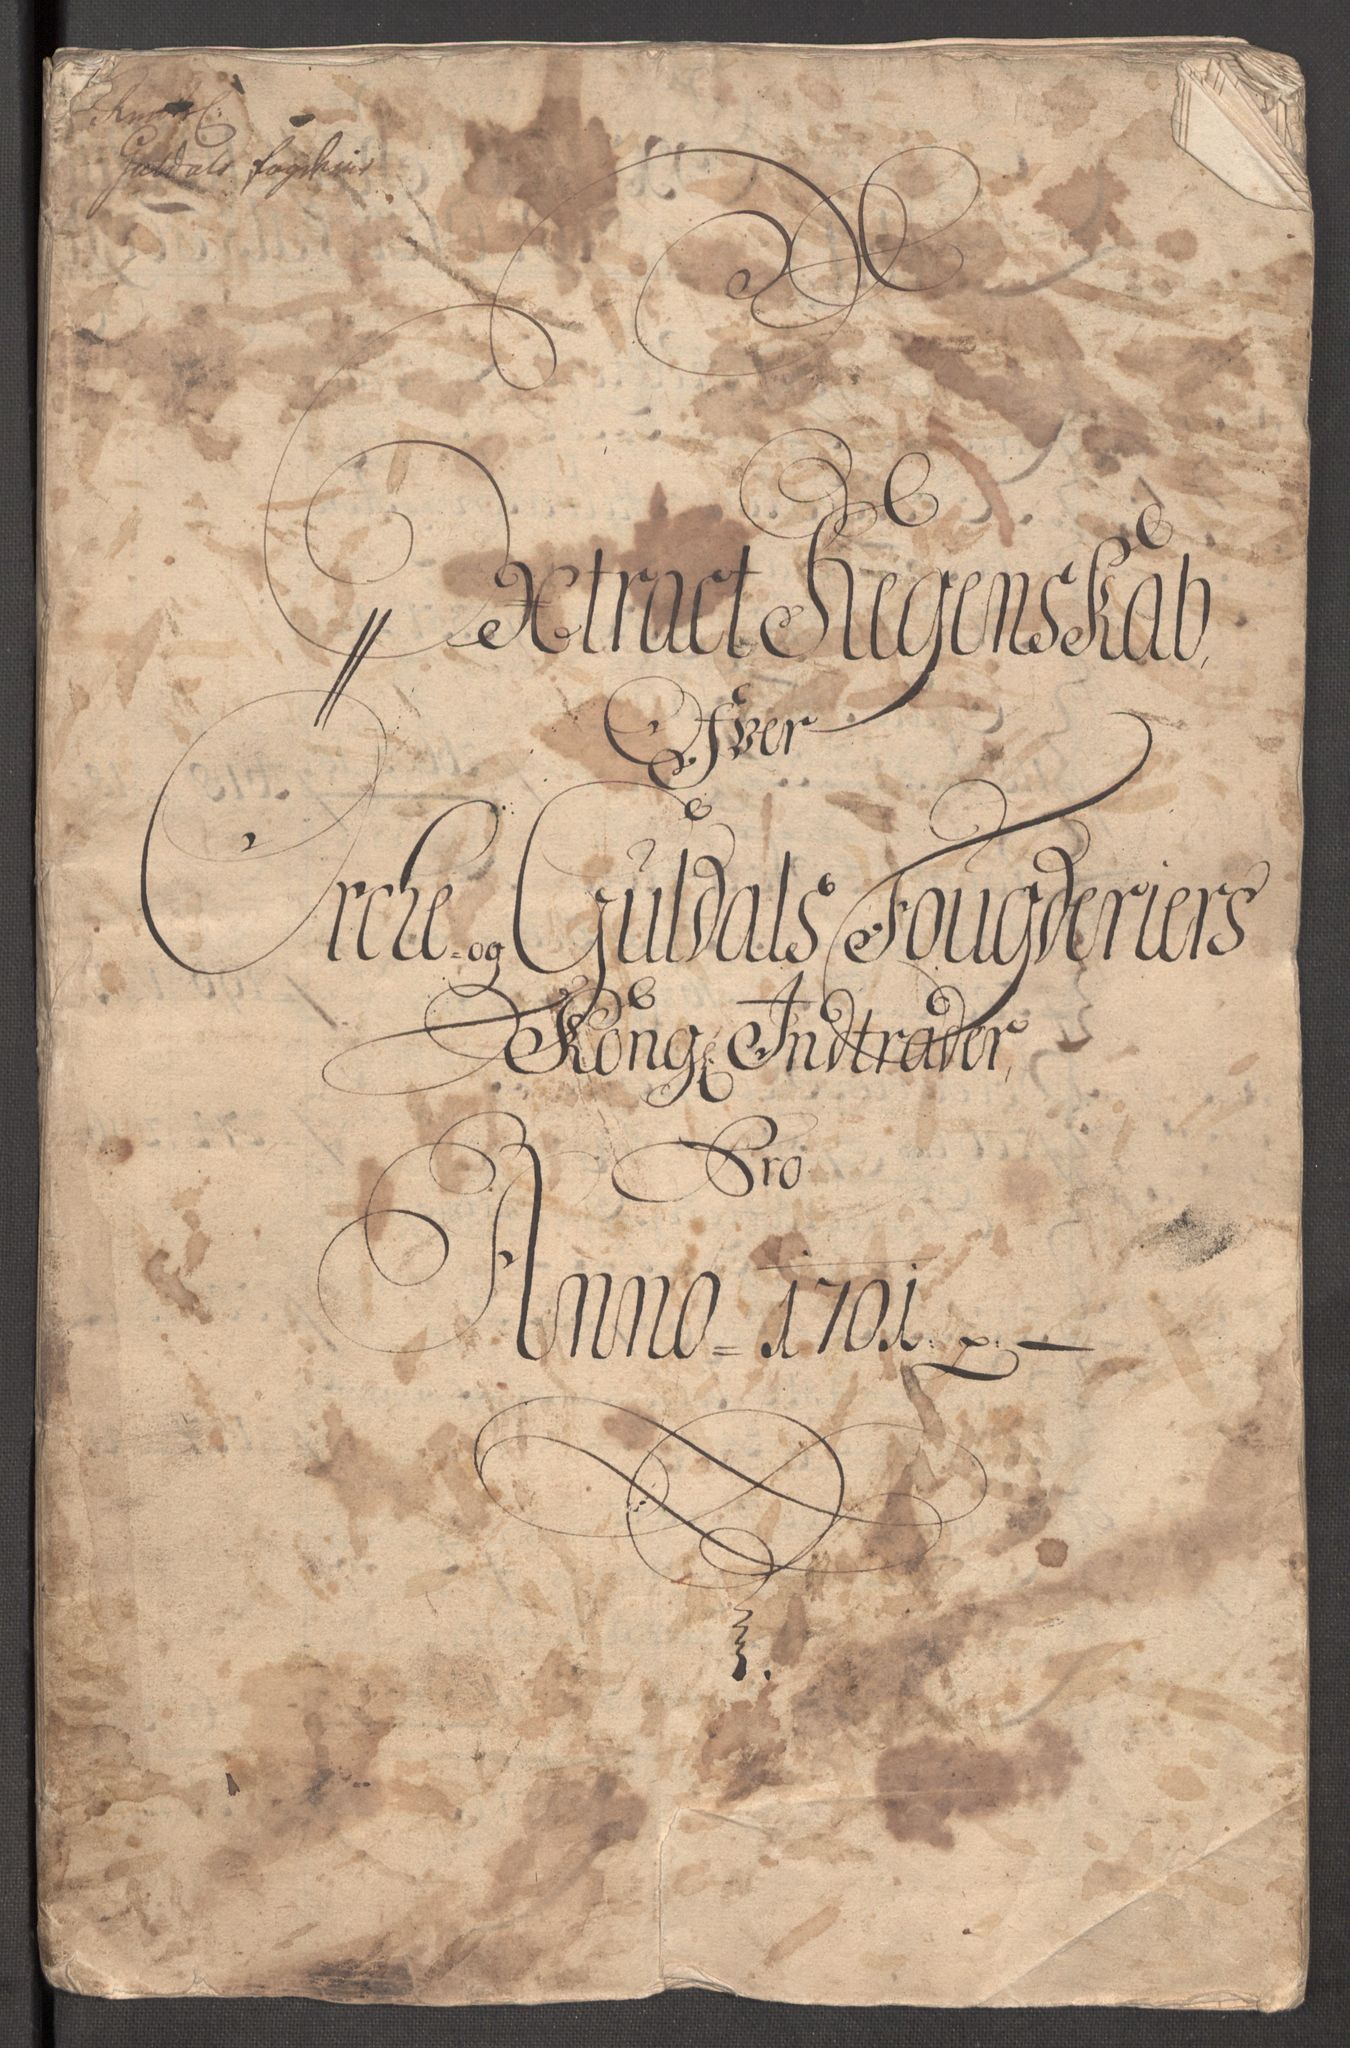 Guldals fogderie
Extract Regenskab,
Ofver
Orche- og Guldals Fougderiers
Kongl Indtrader,
Pro
Anno = 1701.